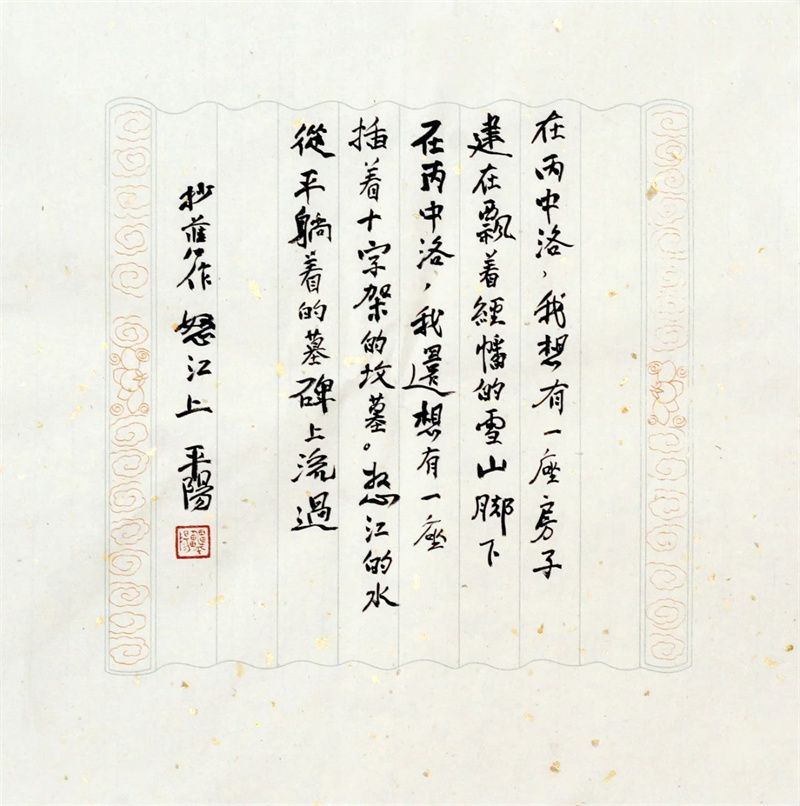 在丙中洛，我想有一座房子
建在飄着經幡的雪山脚下
在丙中洛，我還想有一座
插着十字架的坟墓。怒江的水
從平躺着的墓碑上流過
抄舊作 怒江上 平陽